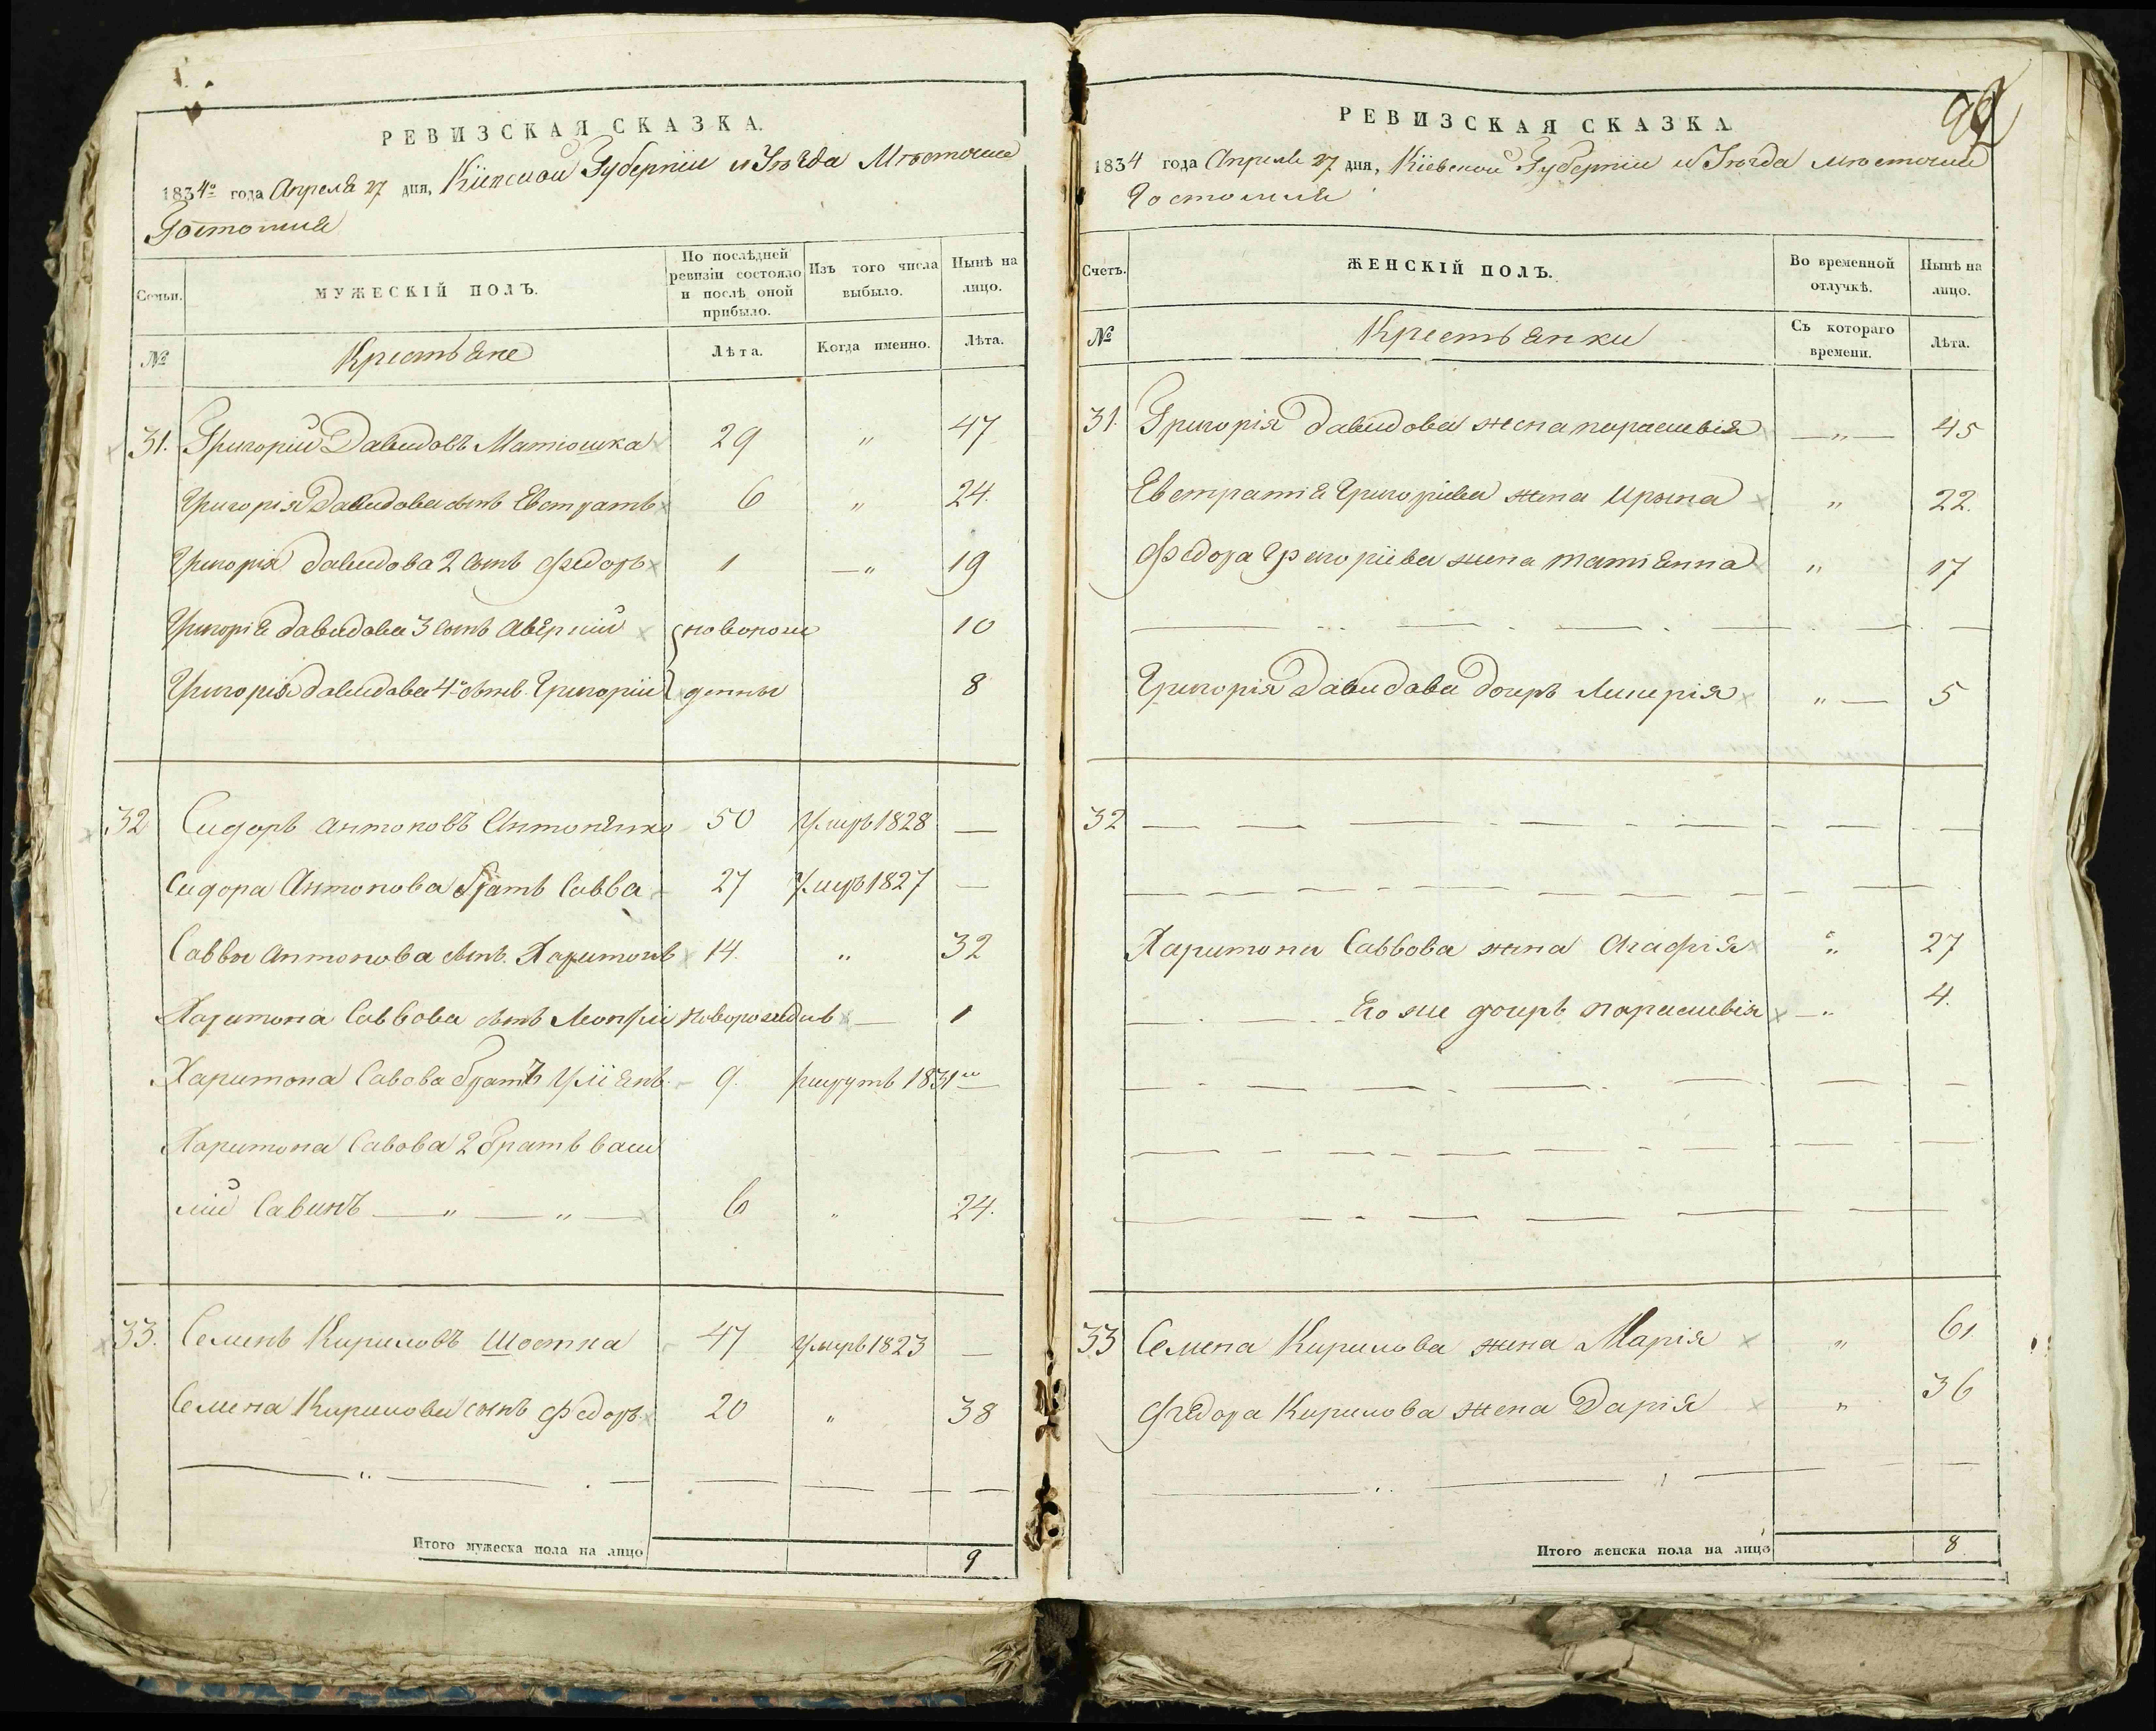 РЕВИЗСКАЯ СКАЗКА.
1834го года Апреля 27 дня, Кіевской Губерніи и Уѣзда Мѣстечка
Гостомля
Семьи.
МУЖЕСКІЙ ПОЛЪ.
По послѣдней ревизіи состояло и послѣ оной прибыло.
Изъ того числа выбыло.
Нынѣ на лицо.
№
Крестьяне
Лѣта.
Когда именно.
Лѣта.
31. Григорий Давидовъ Матюшка 29 " 47
Григорія Давидова сынъ Евстратъ 6 " 24.
Григорія Давидова 2 сынъ Федоръ 1 —" 19
Григорія Давидова 3 сынъ Аверкий новорож 10
Григорія Давидова 4й сынъ Григорій денны 8
32 Сидоръ Антоновъ Антоненко 50 Умеръ 1828 —
Сидора Антонова братъ Савва 27 Умеръ 1827 —
Саввы Антонова сынъ Харитонъ 14. " 32
Харитона Саввова сынъ новорожденъ — 1
Харитона Савова братъ 9. рекрутъ 1831 —
Харитона Савова 2 братъ Васи
лий Савинъ — " — " — 6 " 24.
33. Семенъ Кириловъ Шостка 47 Умеръ 1823 —
Семена Кирилова сынъ Федоръ 20 " 38
Итого мужеска пола на лицо 9
92
РЕВИЗСКАЯ СКАЗКА
1834 года Апреля 27 дня, Кіевской Губерніи и Уѣзда мѣстечка
Гостомля
Счетъ.
ЖЕНСКІЙ ПОЛЪ.
Во временной отлучкѣ.
Нынѣ на лицо.
№
Крестьянки
Съ котораго времени.
Лѣта.
31. Григорія Давидова жена Параскевія —"— 45
Евстратія Григоріева жена Ирына " 22.
Федора Григоріева жена Татіанна " 17
Григорія Давидова дочеръ Ликерія " — 5
32
Харитона Саввова жена Агафія " 27
Его же дочеръ Параскевія —" 4.
33 Семена Кирилова жена Марія " 61
Федора Кирилова жена Дарія " 36
Итого женска пола на лицо 8